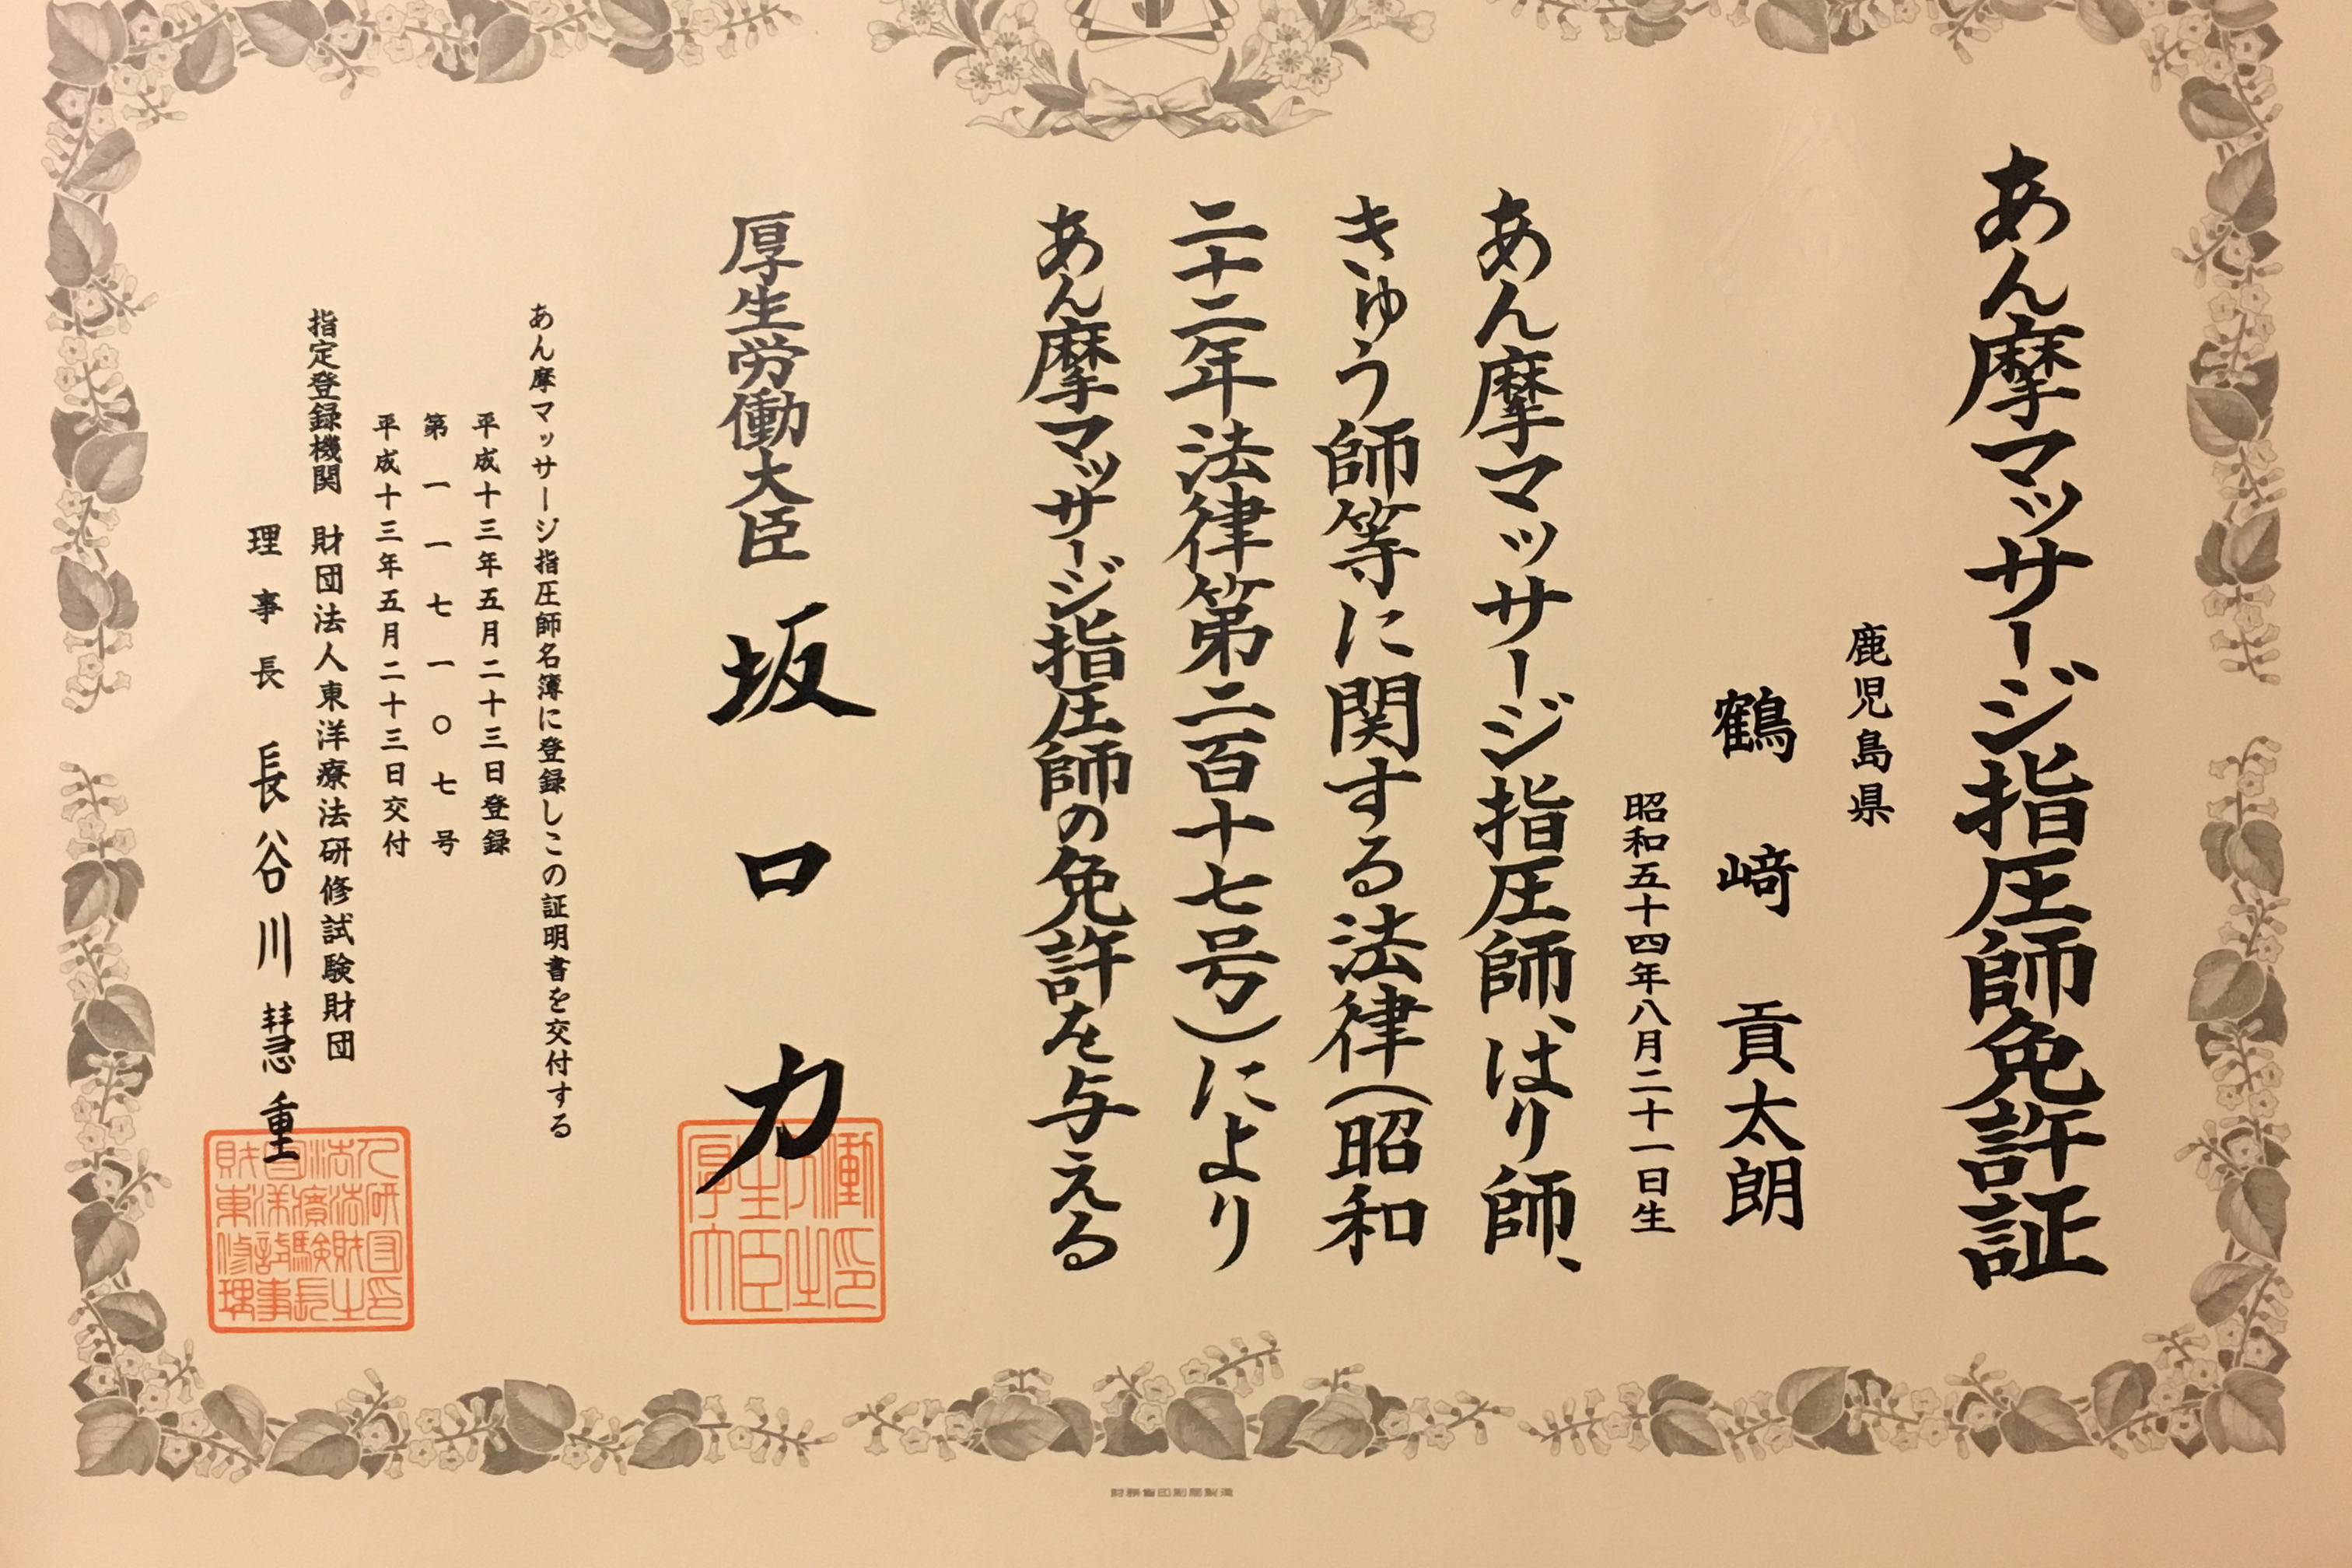 あん摩マッサージ指圧師免許証
鹿児島県
鶴﨑貢太朗
昭和五十四年八月二十一日生
あん摩マッサージ指圧師、はり師、
きゅう師等に関する法律(昭和
二十二年法律第二百十七号)により
あん摩マッサージ指圧師の免許を与える
厚生労働大臣 坂口力
あん摩マッサージ指圧師名簿に登録しこの証明書を交付する
平成十三年五月二十三日登録
第一一七一〇七号
平成十三年五月二十三日交付
指定登録機関 財団法人東洋療法研修試験財団
理事長 長谷川慧重
財務省印刷局製造